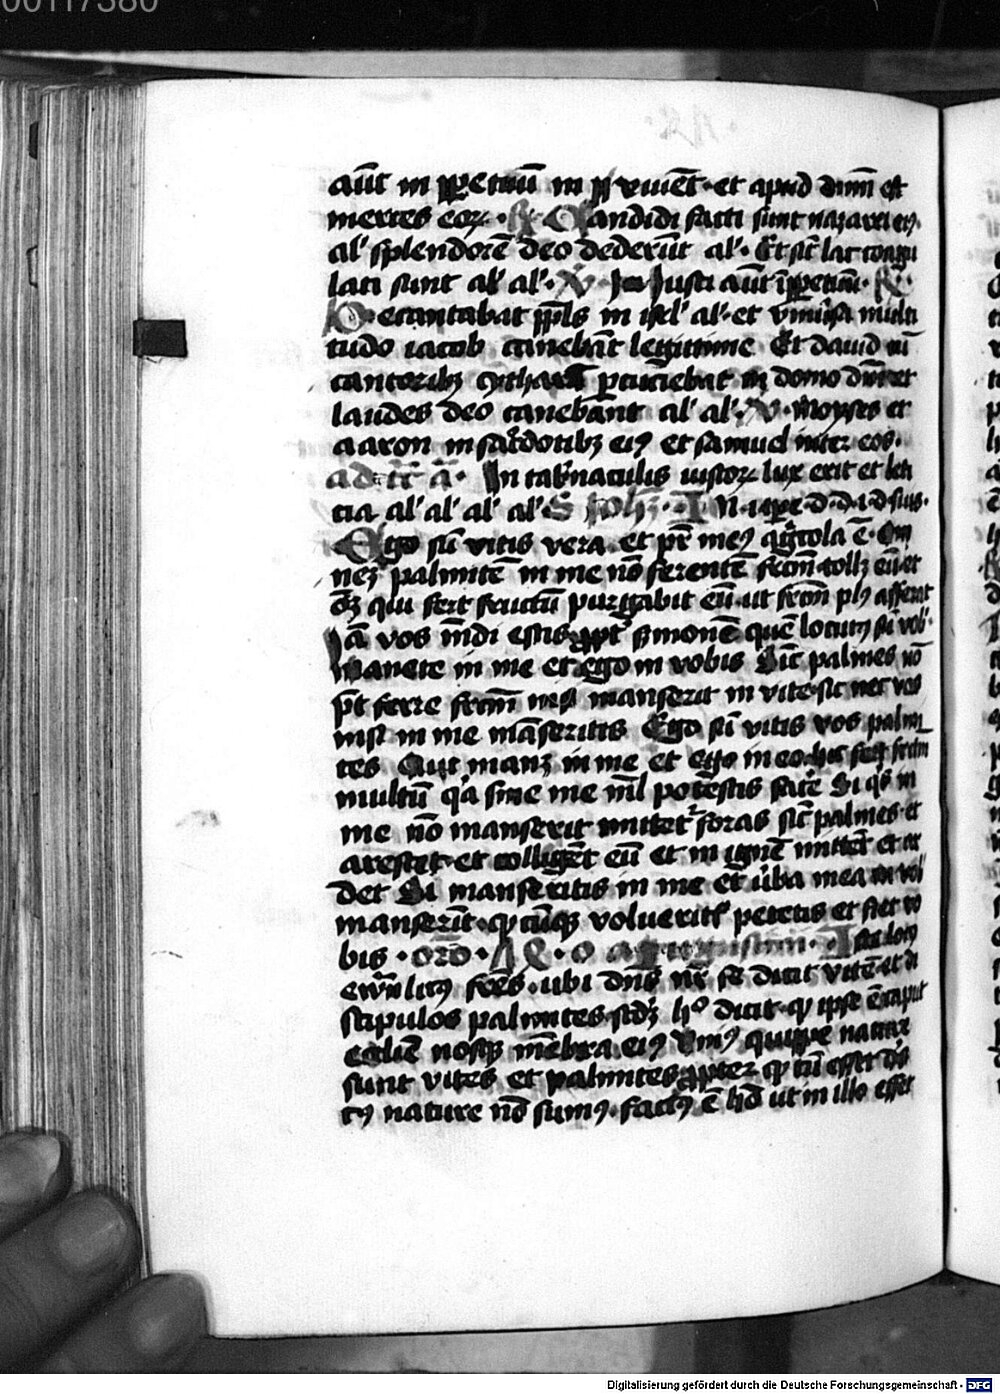 00117380
aūt in ꝑpetuū in ꝑp viuēt · et apud dnm est
merces eoꝝ · ℟ Candidi facti sunt nazarei eiꝰ
al' splendorē deo dederūt al' · Et sic̄ lac coagu
lati sunt al' al' · ℣ · Justi aūt īꝑpetuū · ℟ ·
Decantabat ppls in isrl' al' · et vniūsa multi
tudo iacob canebāt legittime Et dauid cū
cantoribꝫ cythara ꝑcuciebat in domo dni et
laudes deo canebant al' al' · ℣ · Moyses et
aaron in sac̄dotibꝫ eiꝰ et samuel inter eos ·
ad · A · In tab̄naculis iustoꝝ lux erit et leti
tia al' al' al' al' · S Joh · I N · i · d · d · i · d · suis ·
Ego sū vitis vera et pr̄ meꝰ agͥcola ē · Om
nēꝫ palmitē in me nō ferentē frcm̄ tollꝫ eū et
oēꝫ qui fert fructū purgabit eū ut frcm̄ plꝰ afferat
Jā vos mūdi estis ꝓpt̄ sermonē quē locutꝰ sū vob'
Manete in me et ego in vobis Sic̄ palmes nō
pt̄ ferre frcm̄ nisi manserit in vite · sic nec vos
nisi in me māseritis Ego sū vitis vos palmi
tes Qui manꝫ in me et ego in eo · hic fert frcm̄
multū qͥa sine me nīl potestis facē Si qͥs in
me nō manserit mittet᷑ foras sic̄ palmes et
arescet · et colligēt eū et in ignē mittēt et ar
det Si manseritis in me et ūba mea in vob'
manserīt · qͦ cūqꝫ volueritꝭ petetis et fiet vo
bis · oro · Augustini · Iste locꝰ
ewᷓnlicꝰ frēs · ubi dns nr̄ se dicit vitē · et di
scipulos palmites · scdꝫ hͦ dicit · qͦ ipse ē caput
ecclie nosqꝫ mēbra eiꝰ Vniꝰ quippe nature
sunt vites et palmites · ꝓpter qͦ cū esset deꝰ
cꝰ nature nō sumꝰ · factꝰ ē hō ut in illo esset
Digitalisierung gefördert durch die Deutsche Forschungsgemeinschaft - DFG